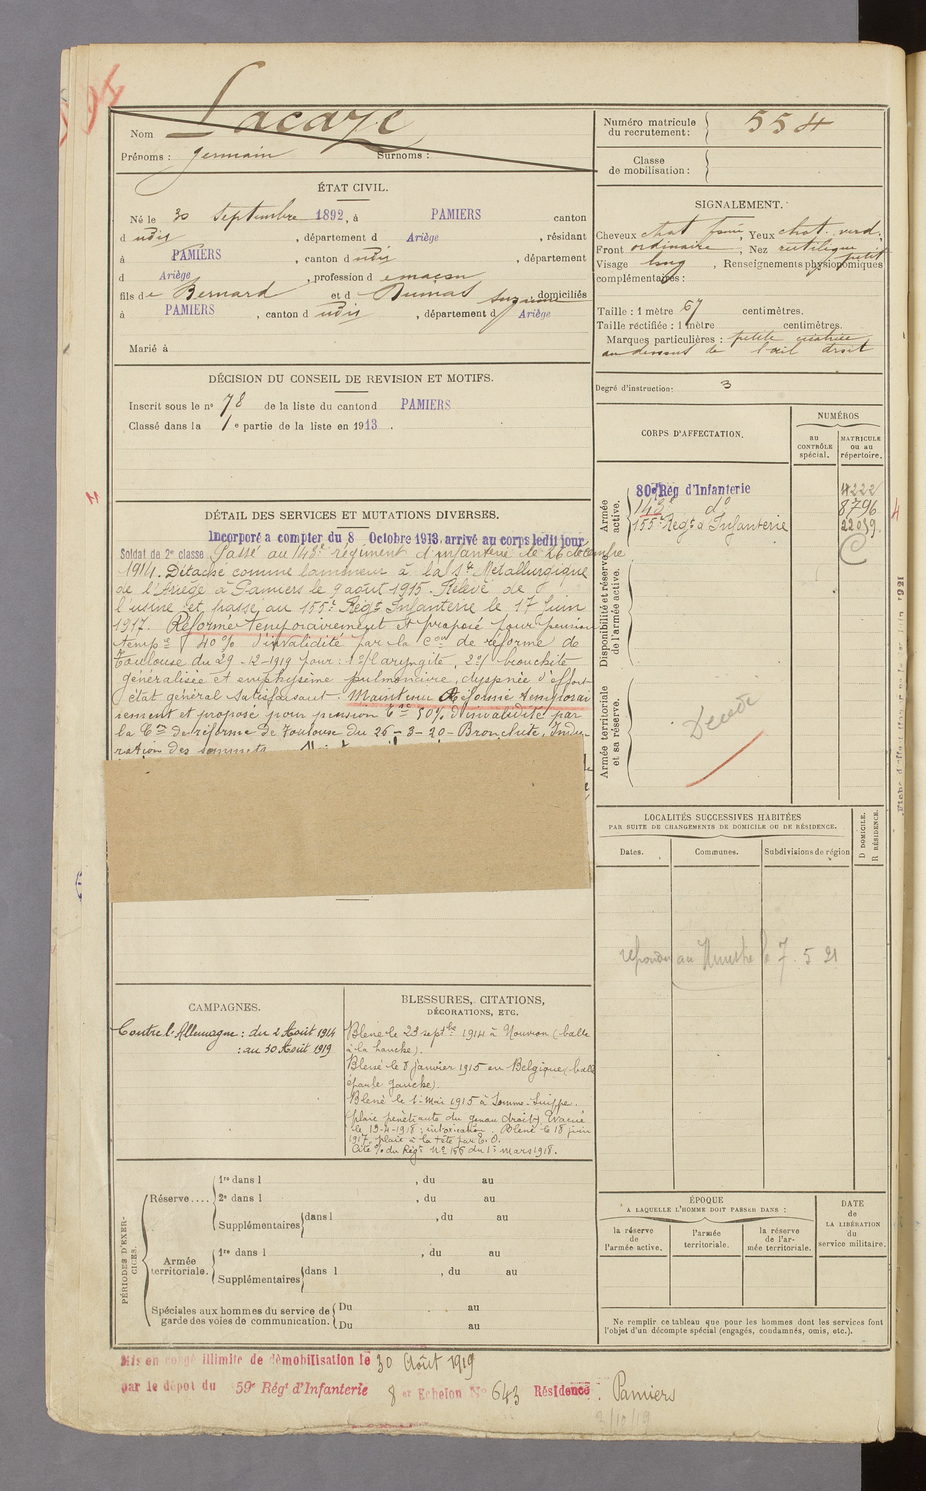 Nom Lacaze
Prénoms : Germain Surnoms :
ÉTAT CIVIL.
Né le 30 Septembre 1892, à PAMIERS canton
d udit, département d Ariège, résidant
à PAMIERS, canton d udit, département
d Ariège, profession de maçon
fils de Bernard et d Dumas Suzanne domiciliés
à PAMIERS, canton d udit, département d Ariège
Marié à
DÉCISION DU CONSEIL DE REVISION ET MOTIFS.
Inscrit sous le nº 78 de la liste du canton d PAMIERS
Classé dans la 1e partie de la liste en 1913.
DÉTAIL DES SERVICES ET MUTATIONS DIVERSES.
Incorporé a compter du 8 Octobre 1913, arrivé au corps ledit jour
Soldat de 2e classe Passé au 143e régiment d'infanterie le 26 décembre
1914. Détaché comme lamineur à la Sté Métallurgique
de l'Ariège à Pamiers le 9 août 1915. Relevé de
l'usine et passe au 155e Régt Infanterie le 17 Juin
1917. Réformé temporairement et proposé pour pension
temp. 40% d'invalidité par la Con de réforme de
Toulouse du 29-12-1919 pour : 1º/ laryngite, 2º/ bronchite
généralisée et emphysème pulmonaire, dyspnée d'effort
état général satisfaisant. Maintenu Réformé temporai
rement et proposé pour pension tre 50% d'invalidité par
la Con de réforme de Toulouse du 26-3-20 - Bronchite, Indu-
ration des sommets.
CAMPAGNES.
Contre l'Allemagne : du 2 Août 1914
: au 30 Août 1919
BLESSURES, CITATIONS,
DÉCORATIONS, ETC.
Blessé le 23 septbre 1914 à Nouvron (balle
à la hanche).
Blessé le 8 janvier 1915 en Belgique (balle
épaule gauche).
Blessé le 1er Mai 1915 à Somme-Suippe.
(plaie pénétrante du genou droit) Evacué
le 13-4-1918 : intoxication. Blessé le 18 juin
1917, plaie à la tête par E. O.
Cité % du Régt Nº 155 du 1er mars 1918.
PÉRIODES D'EXERCICES.
Réserve.... 1re dans l, du au
2e dans l, du au
Supplémentaires dans l, du au
Armée territoriale. 1re dans l, du au
Supplémentaires dans l, du au
Spéciales aux hommes du service de Du au
garde des voies de communication. Du au
Mis en congé illimité de démobilisation le 30 Août 1919
par le dépot du 59e Régt d'Infanterie 8e Echelon Nº 643 Résidence : Pamiers
2/10/19
Numéro matricule
du recrutement : 554
Classe
de mobilisation :
SIGNALEMENT.
Cheveux chat foncé, Yeux chat. verd.
Front ordinaire, Nez rectiligne
Visage long, Renseignements physionomiques petit
complémentaires :
Taille : 1 mètre 67 centimètres.
Taille rectifiée : 1 mètre centimètres.
Marques particulières : petite cicatrice
au dessous de l'œil droit
Degré d'instruction : 3
CORPS D'AFFECTATION.
NUMÉROS
AU CONTRÔLE spécial.
MATRICULE ou au répertoire.
Armée active.
80e Rég d'Infanterie 4222
143e dº 8796
155e Régt d'Infanterie 22059
C
Disponibilité et réserve de l'armée active.
Armée territoriale et sa réserve.
LOCALITÉS SUCCESSIVES HABITÉES
PAR SUITE DE CHANGEMENTS DE DOMICILE OU DE RÉSIDENCE.
Dates.
Communes.
Subdivisions de région
D DOMICILE.
R RÉSIDENCE.
au le 7. 5 21
ÉPOQUE
A LAQUELLE L'HOMME DOIT PASSER DANS :
la réserve de l'armée active.
l'armée territoriale.
la réserve de l'armée territoriale.
DATE de LA LIBÉRATION du service militaire.
Ne remplir ce tableau que pour les hommes dont les services font
l'objet d'un décompte spécial (engagés, condamnés, omis, etc.).